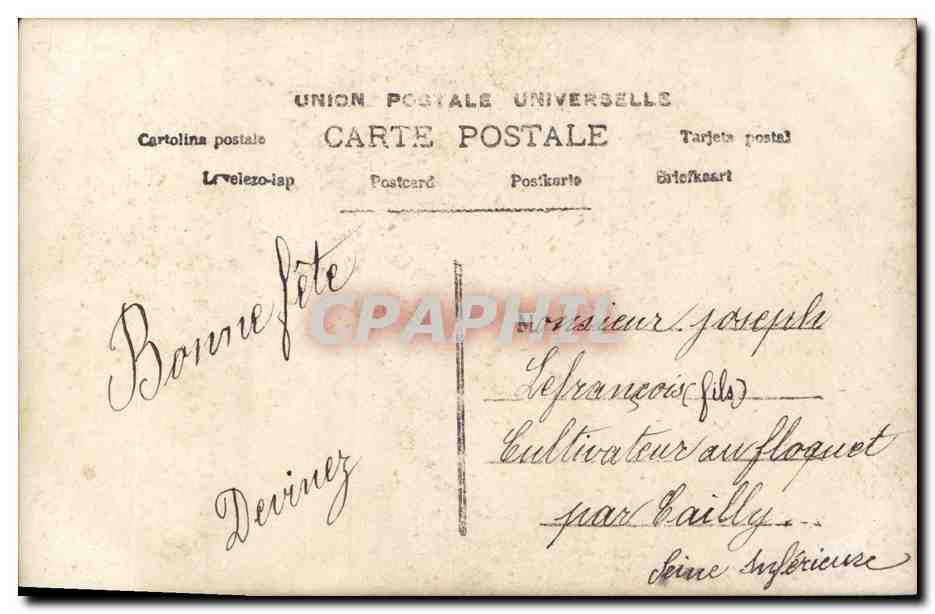 UNION POSTALE UNIVERSELLE
Cartolina postale CARTE POSTALE Tarjeta postal
Levelezo-lap Postcard Postkarte Briefkaart
Bonne fête
Devinez
CPAPHIL
Monsieur joseph
Lefrançois (fils)
Cultivateur au floquet
par Cailly
Seine Inférieure